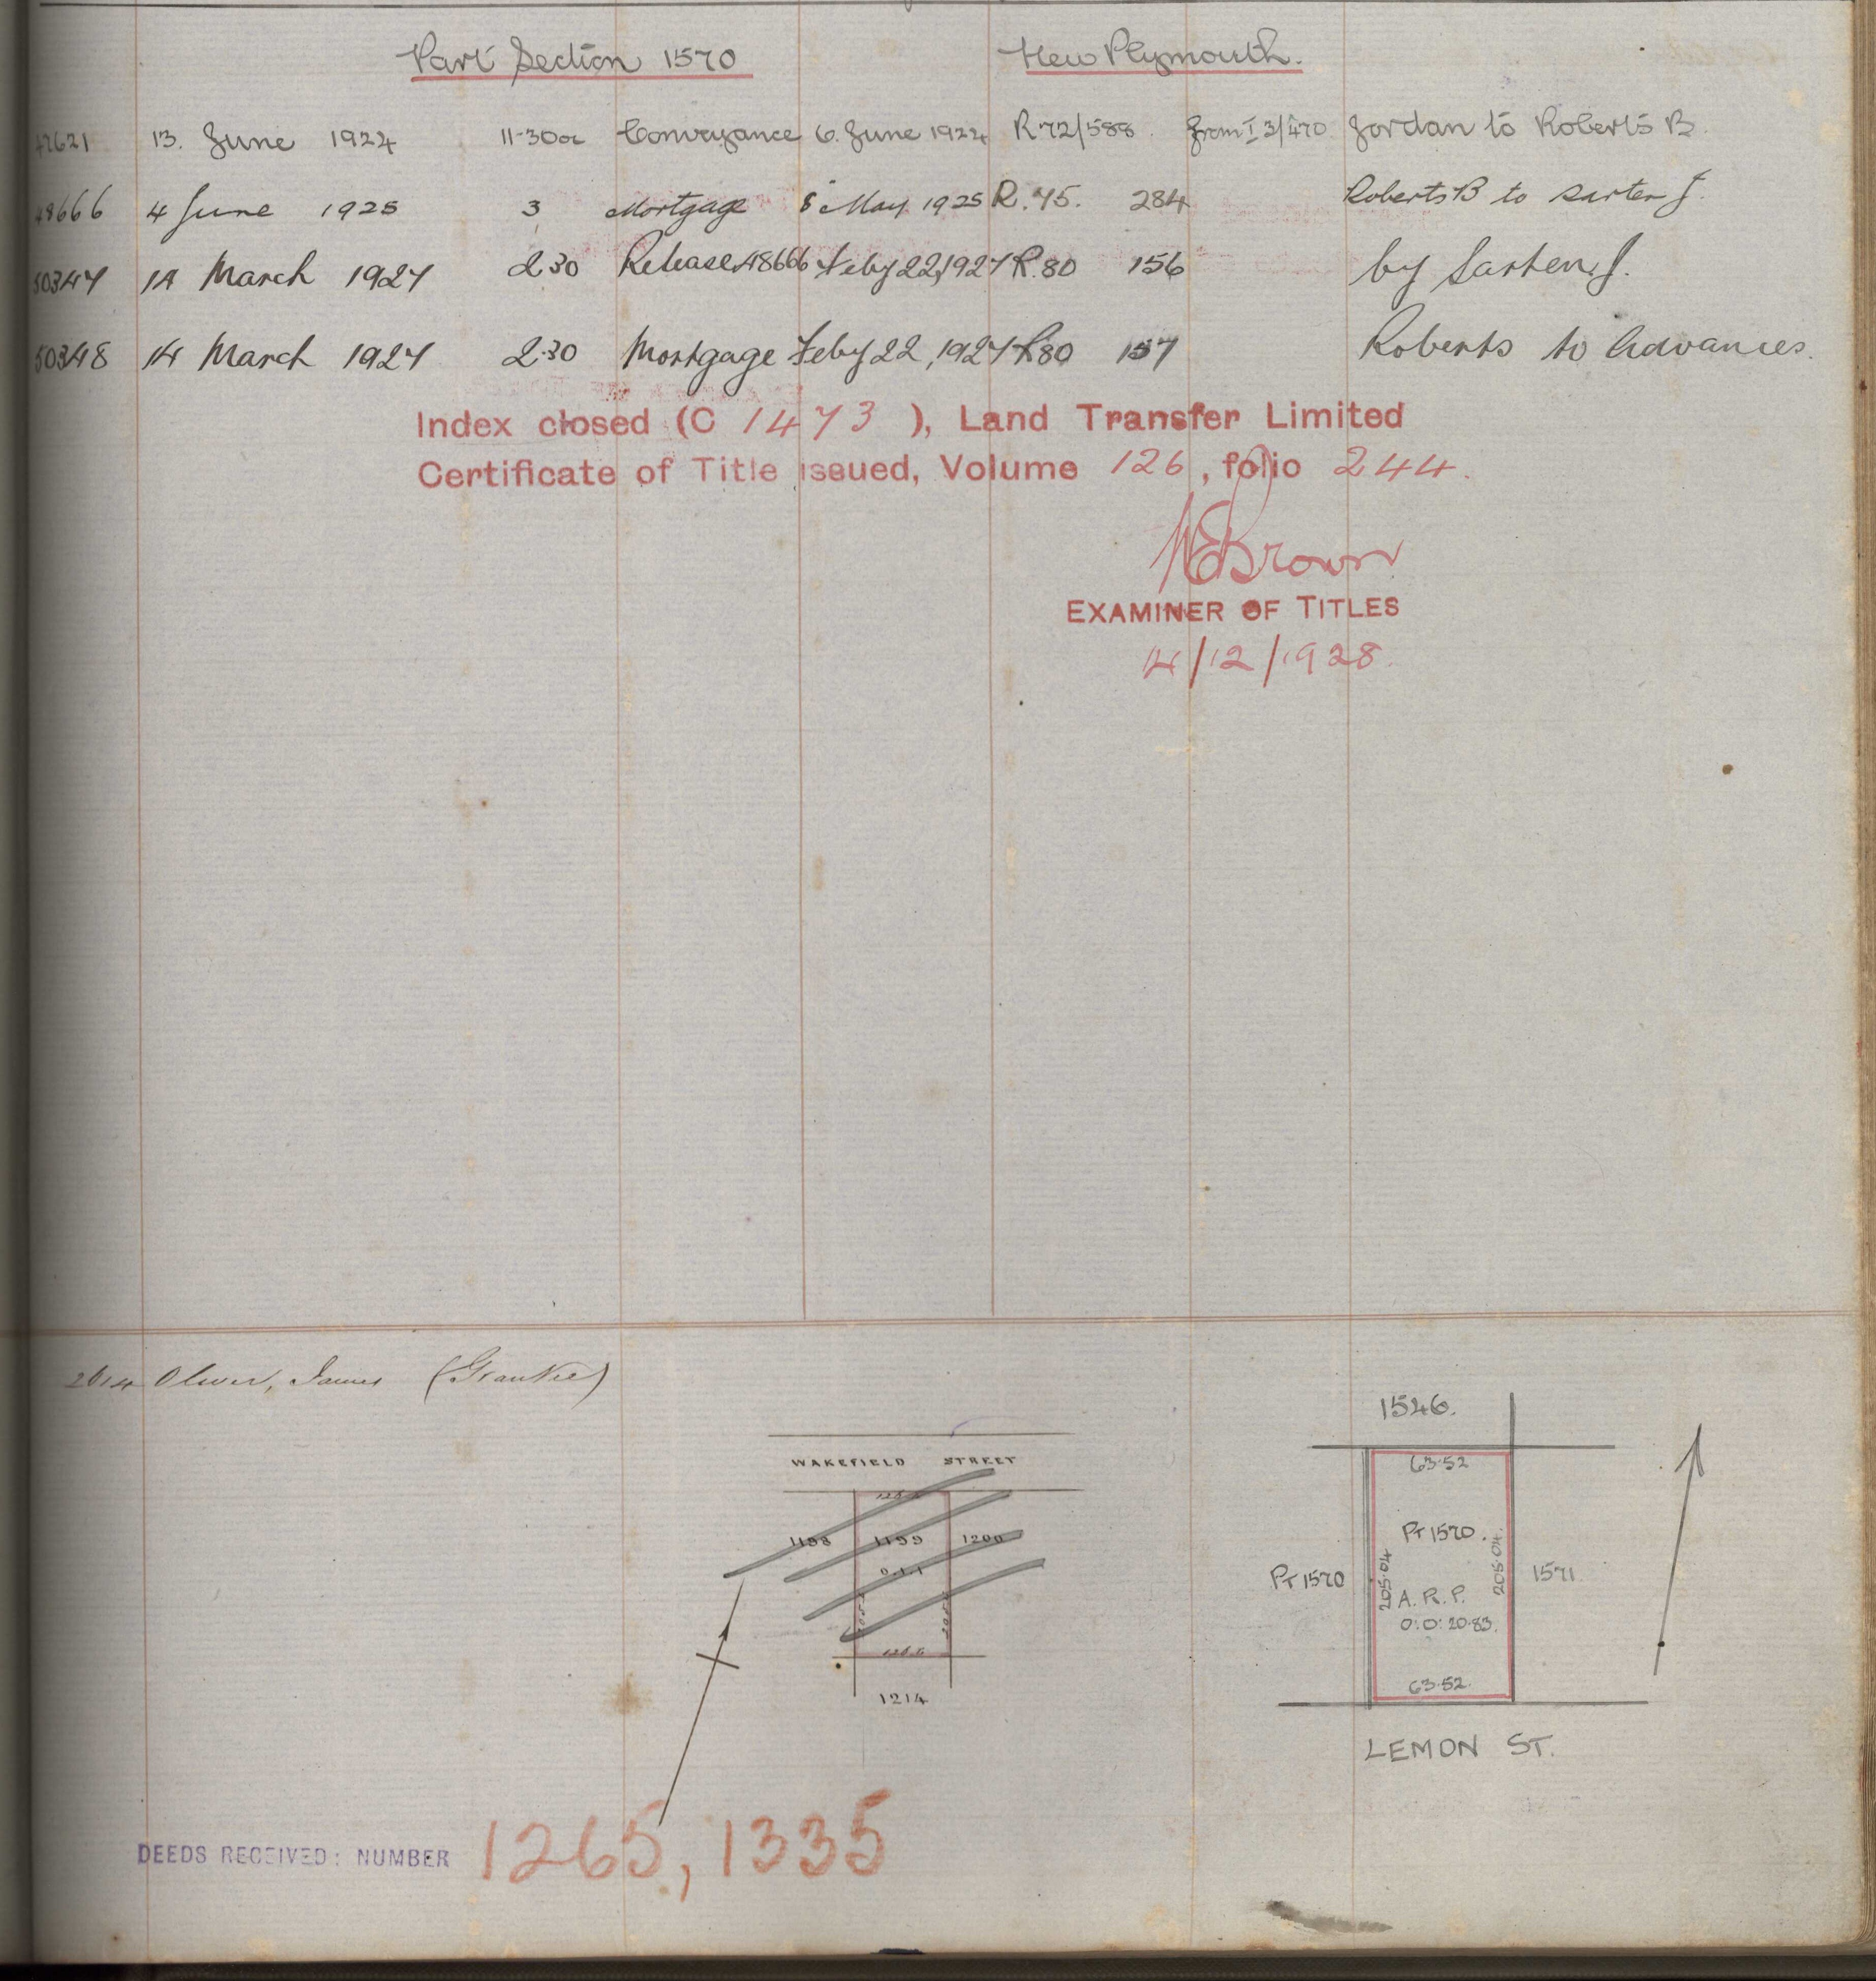 Part Section 1570 New Plymouth.
47621 13. June 1924 11-30a Conveyance 6. June 1924 R72/588. from I 3/470 Jordan to Roberts B.
48666 4 June 1925 3 Mortgage 8 May 1925 R. 75. 284 Roberts B to Sarten J.
50347 14 March 1927 2.30 Release 48666 Feby 22, 1927 R. 80 156 by Sarten. J.
50348 14 March 1927 2.30 Mortgage Feby 22, 1927 R80 157 Roberts to Advances.
Index closed (C 1473 ), Land Transfer Limited
Certificate of Title issued, Volume 126, folio 244.
Brown
EXAMINER OF TITLES
14/12/1928.
2614 Oliver, James (Grantee)
WAKEFIELD STREET
1198 1199 1200
0.1.1
1214
1546.
63.52
Pt 1570.
Pt 1570
205.04
205.04
1571
A. R. P.
0: 0: 20.83.
63.52.
LEMON ST.
DEEDS RECEIVED: NUMBER 1265, 1335